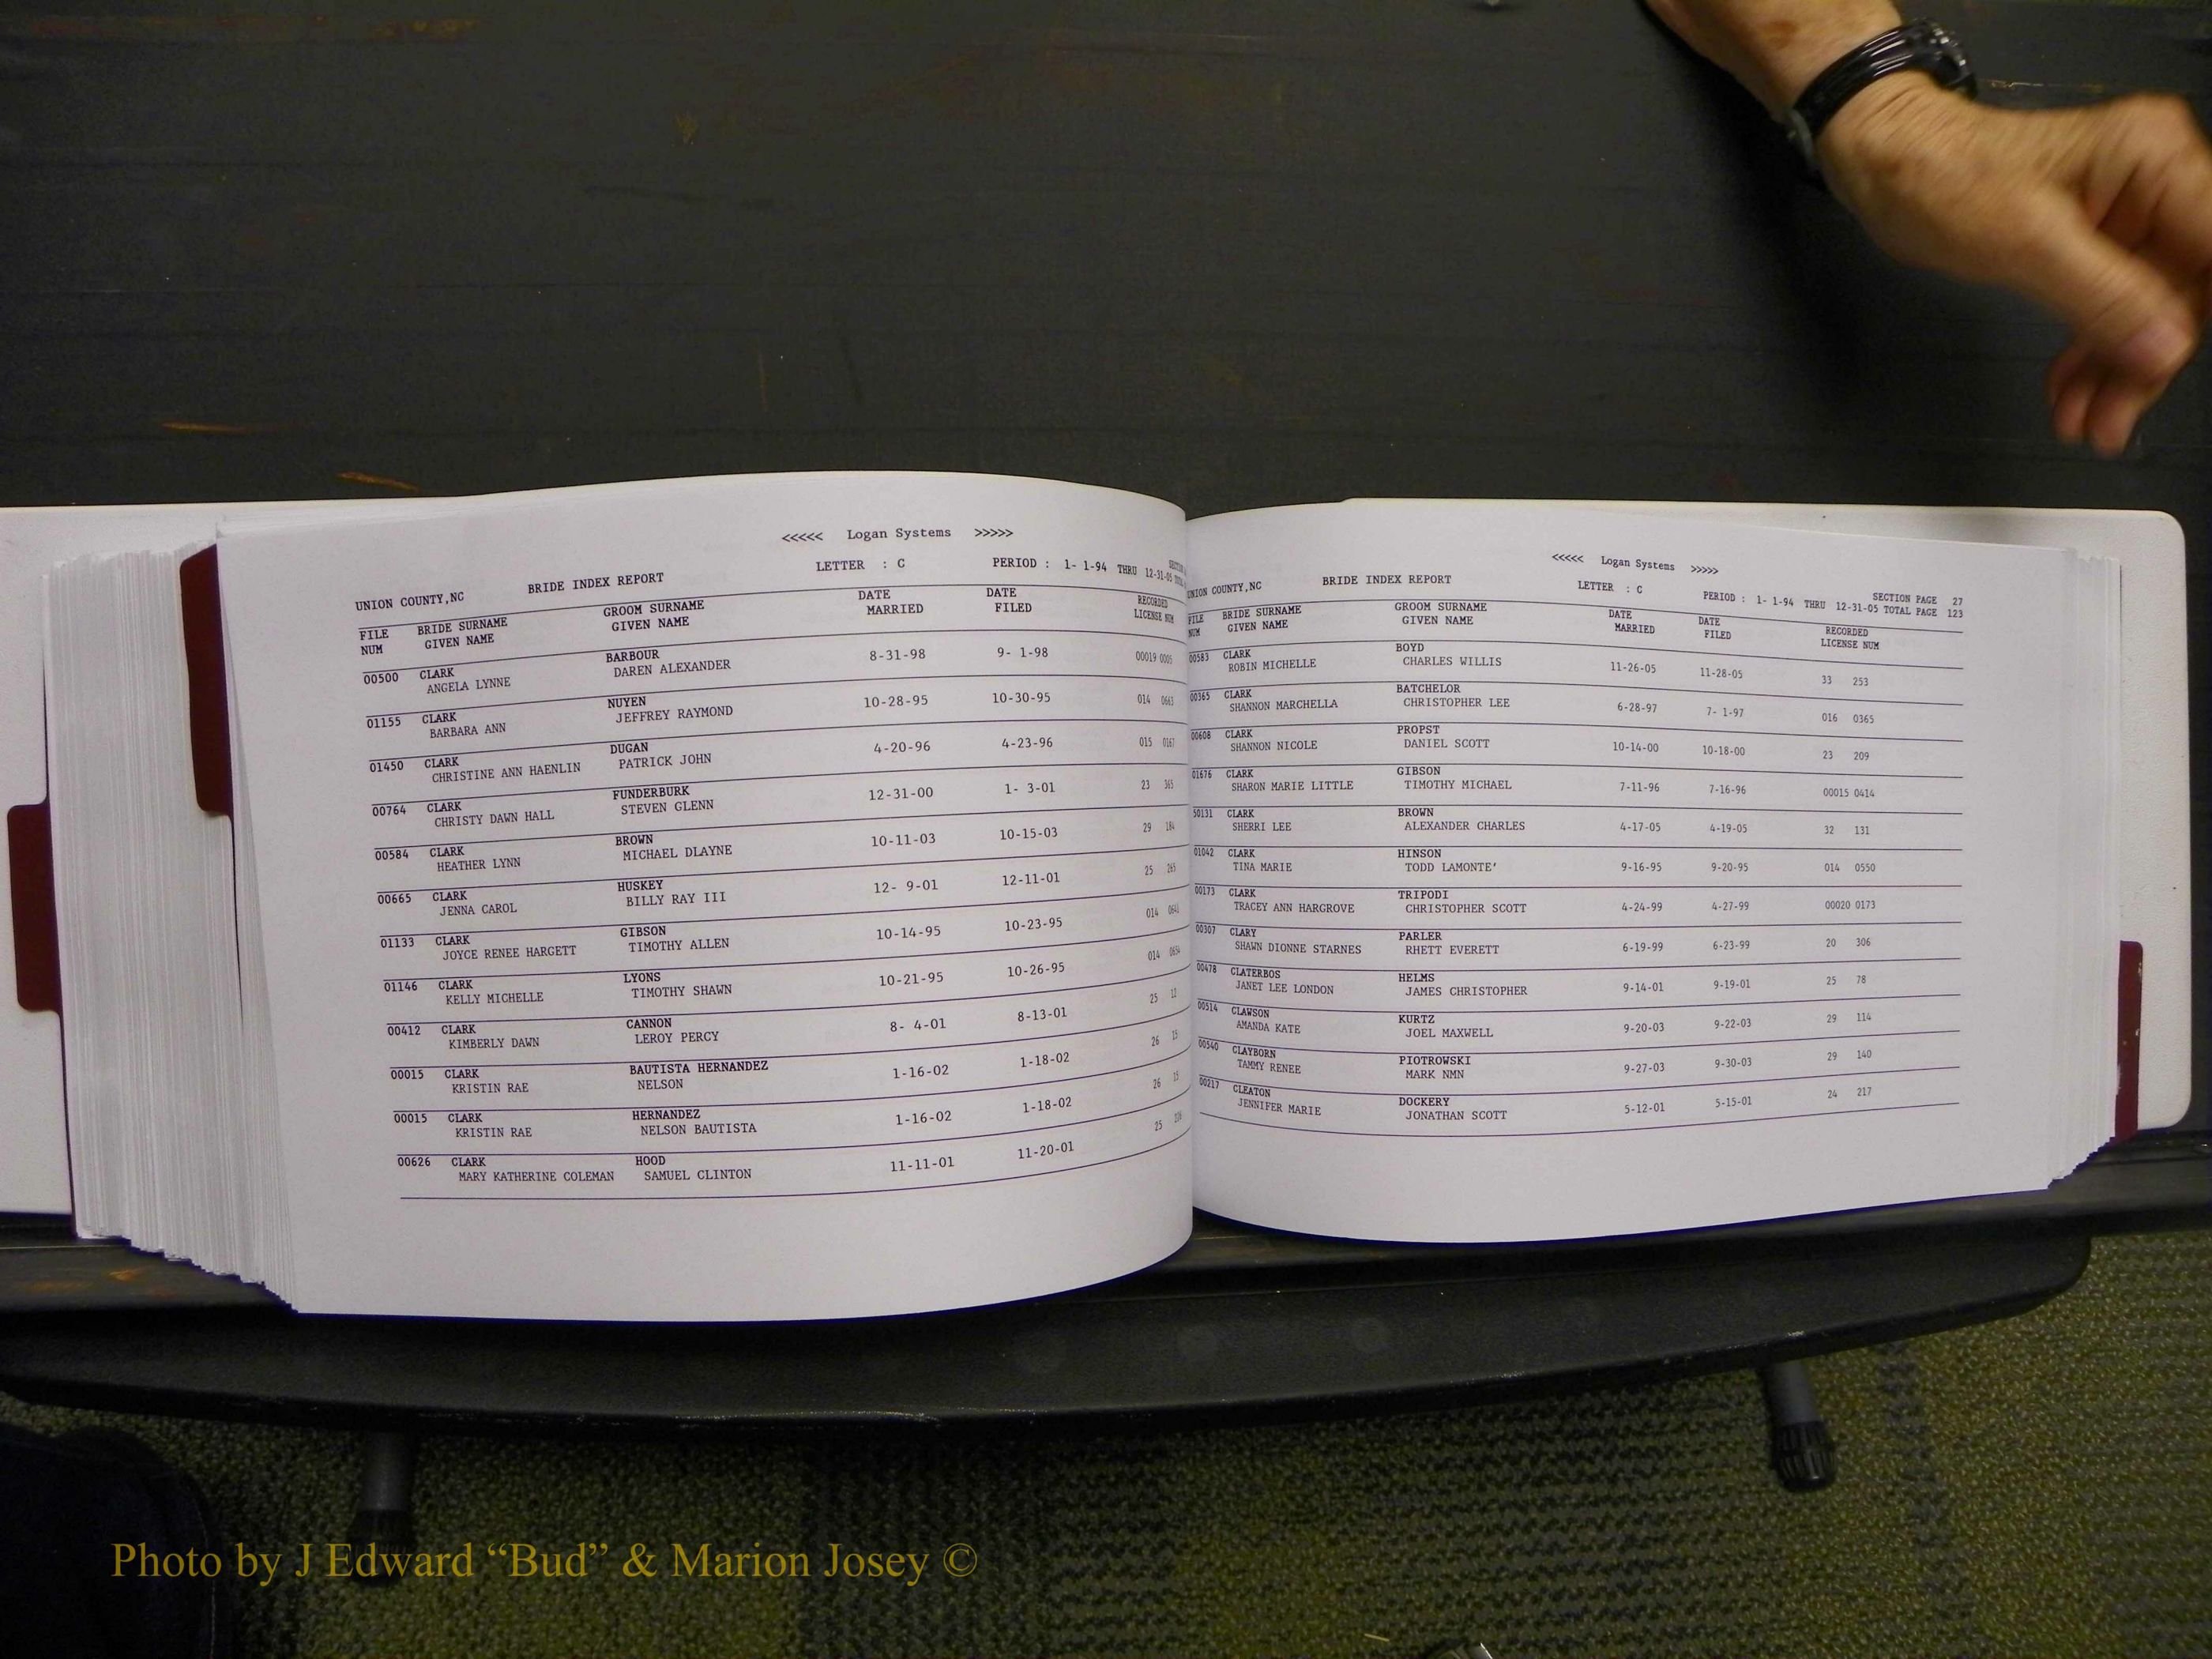 <<<<< Logan Systems >>>>>
UNION COUNTY,NC BRIDE INDEX REPORT LETTER : C PERIOD : 1- 1-94 THRU 12-31-05
FILE BRIDE SURNAME GROOM SURNAME DATE DATE RECORDED
NUM GIVEN NAME GIVEN NAME MARRIED FILED LICENSE NUM
00500 CLARK BARBOUR 8-31-98 9- 1-98 00019
ANGELA LYNNE DAREN ALEXANDER
01155 CLARK NUYEN 10-28-95 10-30-95 014
BARBARA ANN JEFFREY RAYMOND
01450 CLARK DUGAN 4-20-96 4-23-96 015
CHRISTINE ANN HAENLIN PATRICK JOHN
00764 CLARK FUNDERBURK 12-31-00 1- 3-01 23
CHRISTY DAWN HALL STEVEN GLENN
00584 CLARK BROWN 10-11-03 10-15-03 29
HEATHER LYNN MICHAEL DLAYNE
00665 CLARK HUSKEY 12- 9-01 12-11-01 25
JENNA CAROL BILLY RAY III
01133 CLARK GIBSON 10-14-95 10-23-95 014
JOYCE RENEE HARGETT TIMOTHY ALLEN
01146 CLARK LYONS 10-21-95 10-26-95 014
KELLY MICHELLE TIMOTHY SHAWN
00412 CLARK CANNON 8- 4-01 8-13-01 25
KIMBERLY DAWN LEROY PERCY
00015 CLARK BAUTISTA HERNANDEZ 1-16-02 1-18-02 26
KRISTIN RAE NELSON
00015 CLARK HERNANDEZ 1-16-02 1-18-02 26
KRISTIN RAE NELSON BAUTISTA
00626 CLARK HOOD 11-11-01 11-20-01 25
MARY KATHERINE COLEMAN SAMUEL CLINTON
<<<<< Logan Systems >>>>>
SECTION PAGE 27
UNION COUNTY,NC BRIDE INDEX REPORT LETTER : C PERIOD : 1- 1-94 THRU 12-31-05 TOTAL PAGE 123
FILE BRIDE SURNAME GROOM SURNAME DATE DATE RECORDED
NUM GIVEN NAME GIVEN NAME MARRIED FILED LICENSE NUM
00583 CLARK BOYD 11-26-05 11-28-05 33 253
ROBIN MICHELLE CHARLES WILLIS
00365 CLARK BATCHELOR 6-28-97 7- 1-97 016 0365
SHANNON MARCHELLA CHRISTOPHER LEE
00608 CLARK PROPST 10-14-00 10-18-00 23 209
SHANNON NICOLE DANIEL SCOTT
01676 CLARK GIBSON 7-11-96 7-16-96 00015 0414
SHARON MARIE LITTLE TIMOTHY MICHAEL
50131 CLARK BROWN 4-17-05 4-19-05 32 131
SHERRI LEE ALEXANDER CHARLES
01042 CLARK HINSON 9-16-95 9-20-95 014 0550
TINA MARIE TODD LAMONTE'
00173 CLARK TRIPODI 4-24-99 4-27-99 00020 0173
TRACEY ANN HARGROVE CHRISTOPHER SCOTT
00307 CLARY PARLER 6-19-99 6-23-99 20 306
SHAWN DIONNE STARNES RHETT EVERETT
00478 CLATERBOS HELMS 9-14-01 9-19-01 25 78
JANET LEE LONDON JAMES CHRISTOPHER
00514 CLAWSON KURTZ 9-20-03 9-22-03 29 114
AMANDA KATE JOEL MAXWELL
00540 CLAYBORN PIOTROWSKI 9-27-03 9-30-03 29 140
TAMMY RENEE MARK NMN
00217 CLEATON DOCKERY 5-12-01 5-15-01 24 217
JENNIFER MARIE JONATHAN SCOTT
Photo by J Edward “Bud” & Marion Josey ©